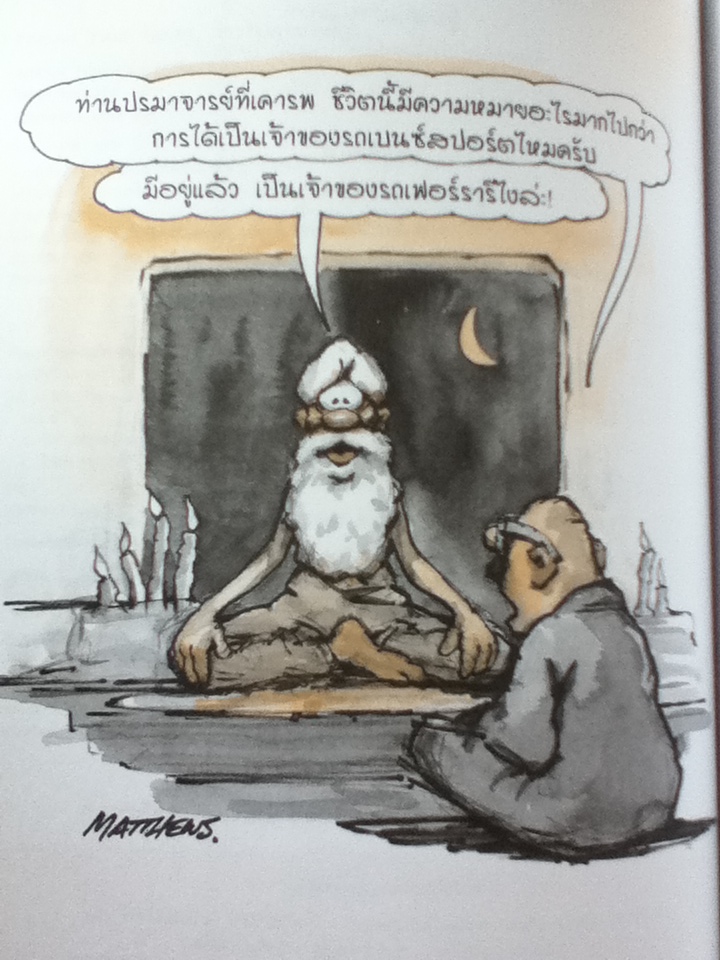 ท่านปรมาจารย์ที่เคารพ ชีวิตนี้มีความหมายอะไรมากไปกว่า
การได้เป็นเจ้าของรถเบนซ์สปอร์ตไหมครับ
มีอยู่แล้ว เป็นเจ้าของรถเฟอร์รารีไงล่ะ!
MATTHEWS.